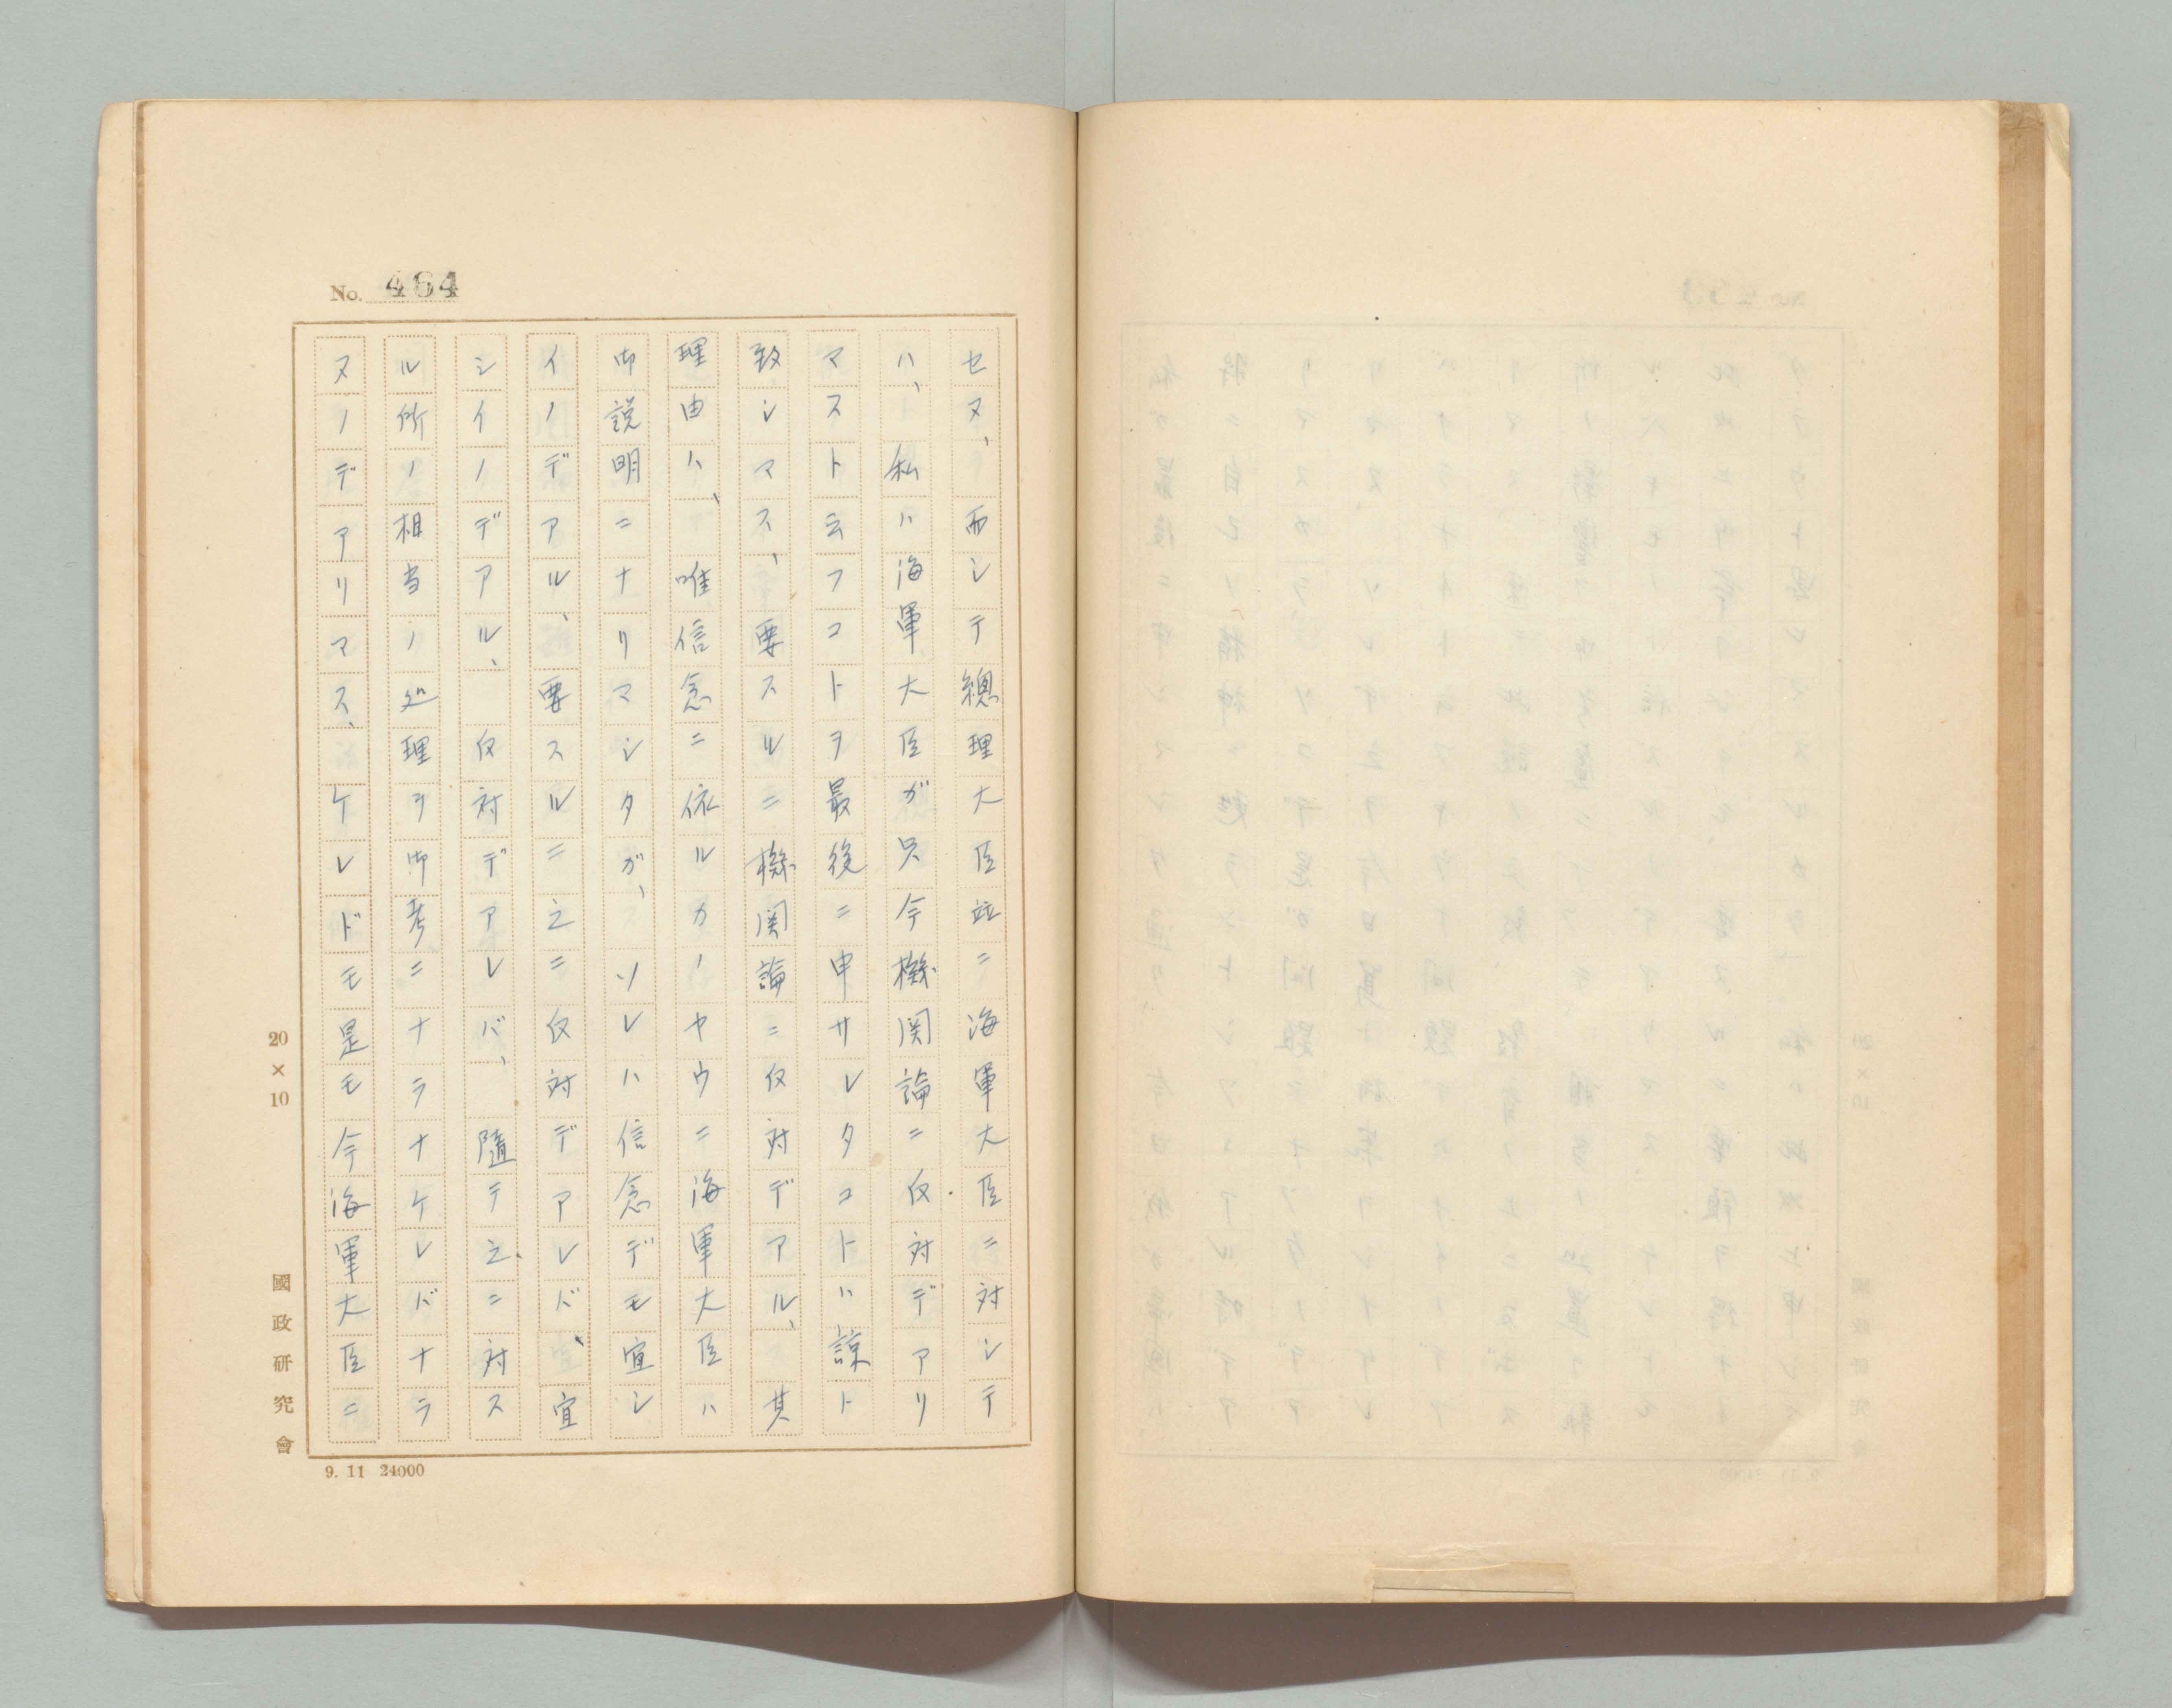 No. 484
セヌ、而シテ總理大臣竝ニ海軍大臣ニ対シテ
ハ、私ハ海軍大臣ガ只今機関論ニ反対デアリ
マスト云フコトヲ最後ニ申サレタコトハ諒ト
致シマス、要スルニ機関論ニ反対デアル、其
理由ハ、唯信念ニ依ルカノヤウニ海軍大臣ハ
御説明ニナリマシタガ、ソレハ信念デモ宜シ
イノデアル、要スルニ之ニ反対デアレバ、宜
シイノデアル、反対デアレバ、隨テ之ニ対ス
ル所ノ相当ノ処理ヲ御考ニナラナケレバナラ
ヌノデアリマス、ケレドモ是モ今海軍大臣ニ
20×10
國政研究會
9. 11 24000